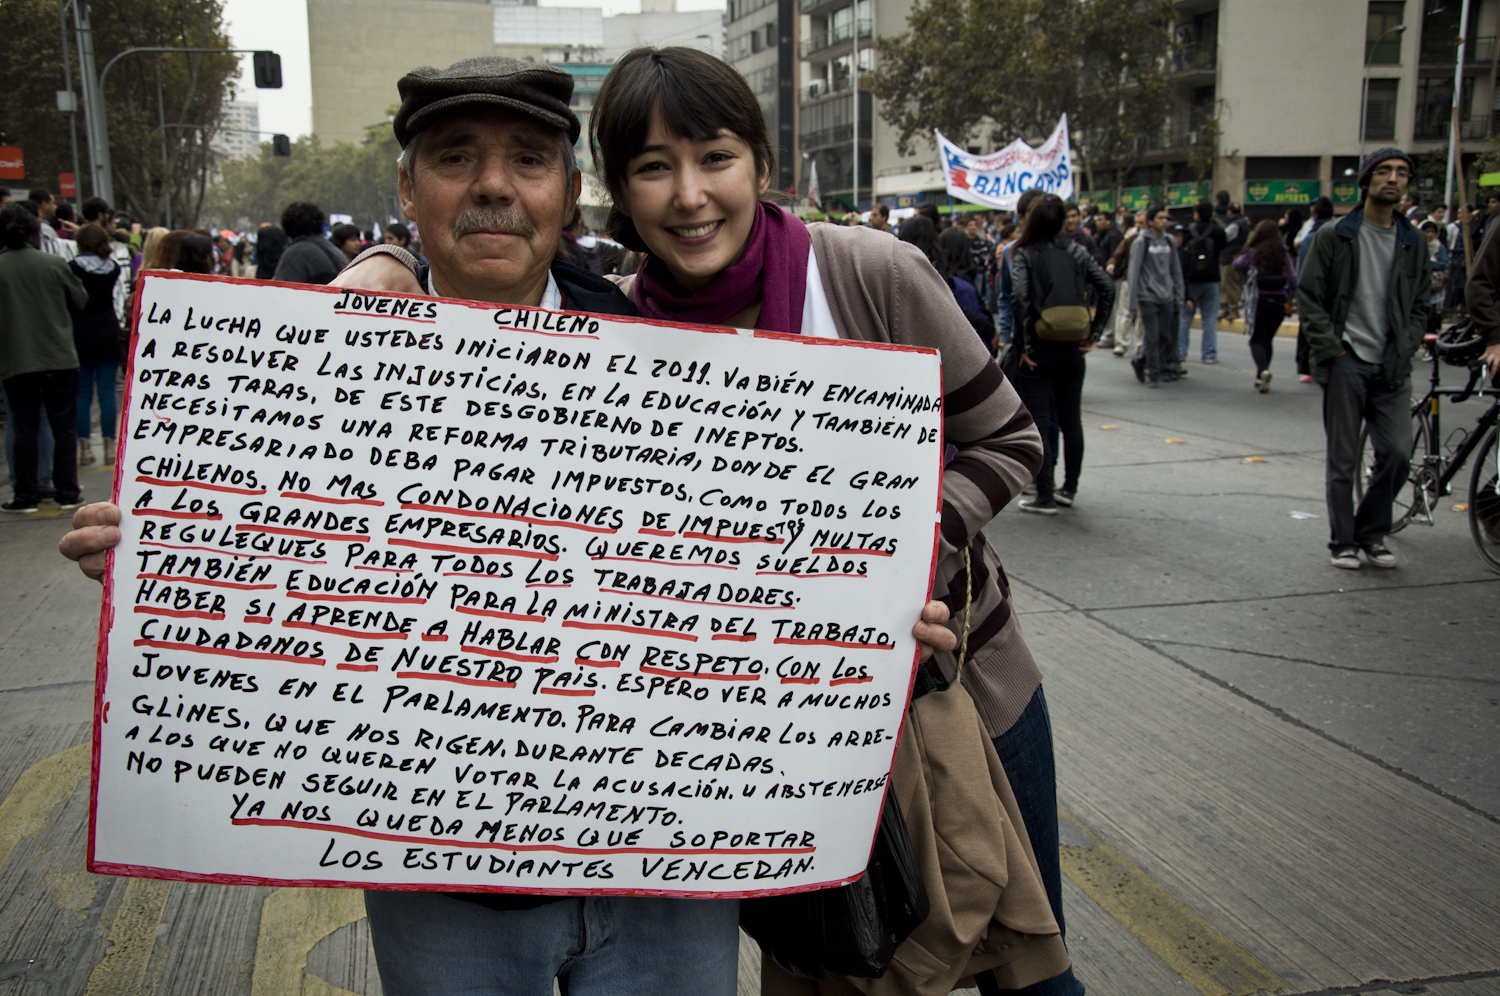 JOVENES CHILENO
LA LUCHA QUE USTEDES INICIARON EL 2011. VA BIÉN ENCAMINADA
A RESOLVER LAS INJUSTICIAS, EN LA EDUCACIÓN Y TAMBIÉN DE
OTRAS TARAS, DE ESTE DESGOBIERNO DE INEPTOS.
NECESITAMOS UNA REFORMA TRIBUTARIA, DONDE EL GRAN
EMPRESARIADO DEBA PAGAR IMPUESTOS, COMO TODOS LOS
CHILENOS. NO MAS CONDONACIONES DE IMPUESTOS Y MULTAS
A LOS GRANDES EMPRESARIOS. QUEREMOS SUELDOS
REGULEQUES PARA TODOS LOS TRABAJADORES.
TAMBIÉN EDUCACIÓN PARA LA MINISTRA DEL TRABAJO,
HABER SI APRENDE A HABLAR CON RESPETO, CON LOS
CIUDADANOS DE NUESTRO PAIS. ESPERO VER A MUCHOS
JOVENES EN EL PARLAMENTO. PARA CAMBIAR LOS ARRE-
GLINES, QUE NOS RIGEN, DURANTE DECADAS.
A LOS QUE NO QUEREN VOTAR LA ACUSACIÓN. U ABSTENERSE
NO PUEDEN SEGUIR EN EL PARLAMENTO.
YA NOS QUEDA MENOS QUE SOPORTAR
LOS ESTUDIANTES VENCERAN.
BANCARIOS
Claro